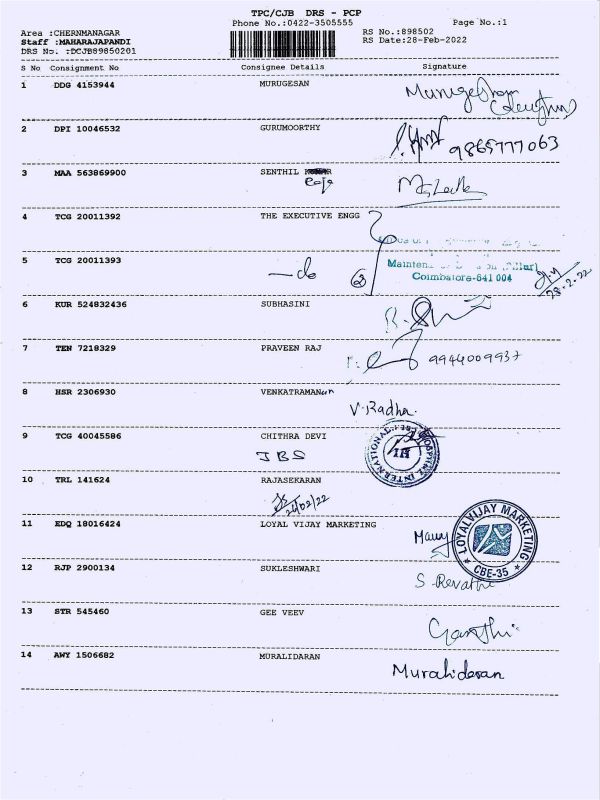 TPC/CJB DRS - PCP
Phone No.:0422-3505555
Page No.:1
Area :CHERNMANAGAR
Staff :MAHARAJAPANDI
DRS No. :DCJB89850201
RS No.:898502
RS Date:28-Feb-2022
S No Consignment No Consignee Details Signature
1 DDG 4153944 MURUGESAN
2 DPI 10046532 GURUMOORTHY
9865777063
3 MAA 563869900 SENTHIL
4 TCG 20011392 THE EXECUTIVE ENGG
5 TCG 20011393
Coimbatore-641 004
28-2-22
6 KUR 524832436 SUBHASINI
7 TEN 7218329 PRAVEEN RAJ
9944009937
8 HSR 2306930 VENKATRAMAN
V. Radha
9 TCG 40045586 CHITHRA DEVI
JBS
10 TRL 141624 RAJASEKARAN
11 EDQ 18016424 LOYAL VIJAY MARKETING
LOYALVIJAY MARKETING
CBE-35
12 RJP 2900134 SUKLESHWARI
S. Revathi
13 STR 545460 GEE VEEV
14 AWY 1506682 MURALIDARAN
Muralidaran